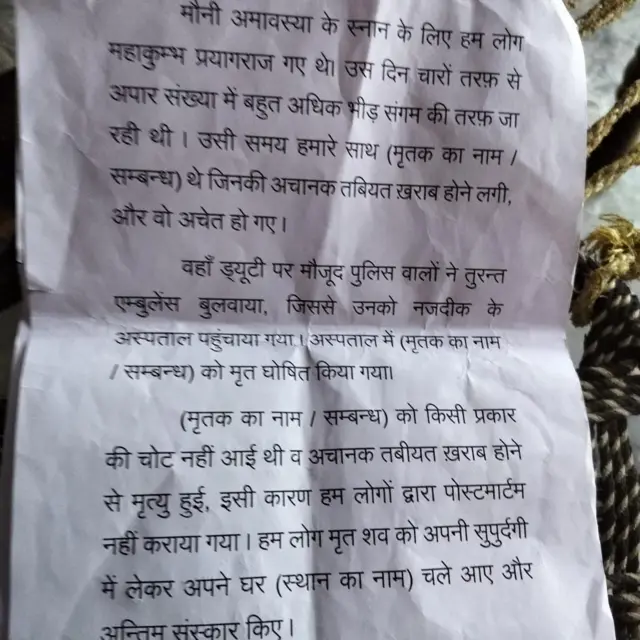 मौनी अमावस्या के स्नान के लिए हम लोग
महाकुम्भ प्रयागराज गए थे। उस दिन चारों तरफ़ से
अपार संख्या में बहुत अधिक भीड़ संगम की तरफ़ जा
रही थी । उसी समय हमारे साथ (मृतक का नाम /
सम्बन्ध) थे जिनकी अचानक तबियत ख़राब होने लगी,
और वो अचेत हो गए ।
वहाँ ड्यूटी पर मौजूद पुलिस वालों ने तुरन्त
एम्बुलेंस बुलवाया, जिससे उनको नजदीक के
अस्पताल पहुंचाया गया। अस्पताल में (मृतक का नाम
/ सम्बन्ध) को मृत घोषित किया गया।
(मृतक का नाम / सम्बन्ध) को किसी प्रकार
की चोट नहीं आई थी व अचानक तबीयत ख़राब होने
से मृत्यु हुई, इसी कारण हम लोगों द्वारा पोस्टमार्टम
नहीं कराया गया । हम लोग मृत शव को अपनी सुपुर्दगी
में लेकर अपने घर (स्थान का नाम) चले आए और
अन्तिम संस्कार किए ।